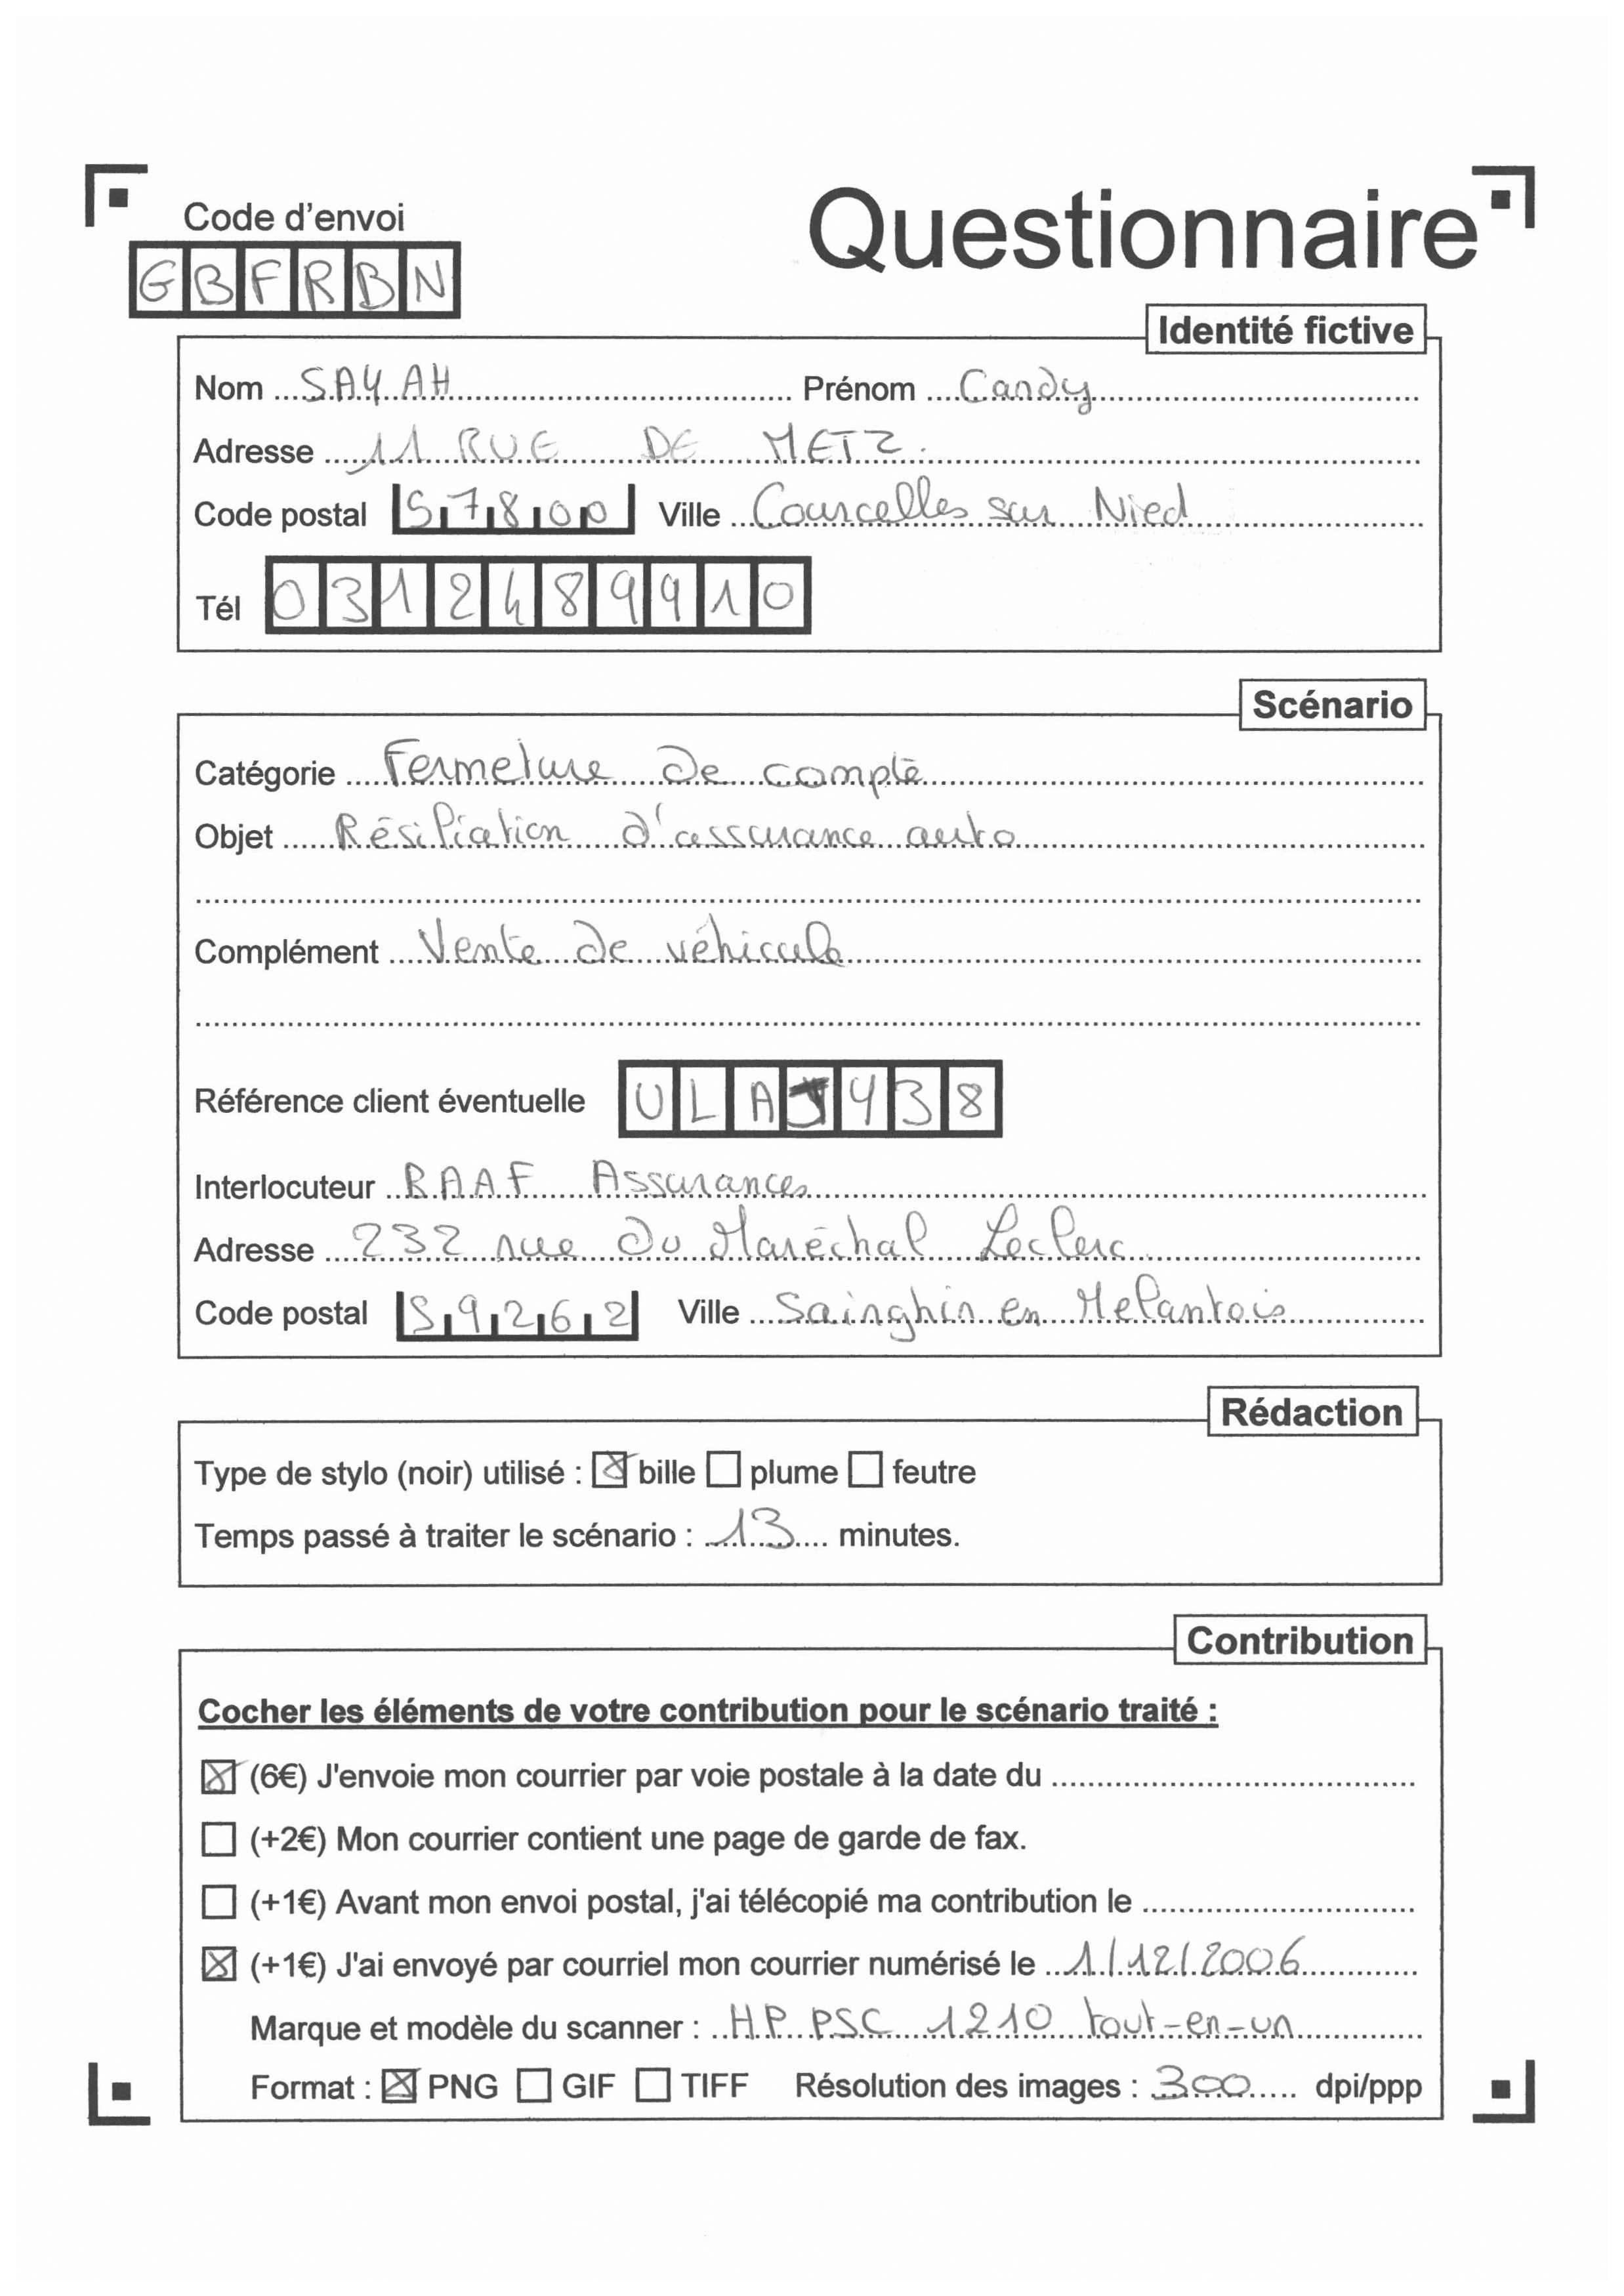 Code d'envoi
Questionnaire
GBFRBN
Identité fictive
Nom SAYAH Prénom Candy
Adresse 11 RUE DE METZ.
Code postal 57800 Ville Courcelles sur Nied
Tél 0312489910
Scénario
Catégorie Fermeture de compte
Objet Résiliation d'assurance auto
Complément Vente de véhicule
Référence client éventuelle ULAJY38
Interlocuteur RAAF Assurances
Adresse 232 rue du Maréchal Leclerc
Code postal 59262 Ville Sainghin en Melantois
Rédaction
Type de stylo (noir) utilisé : bille plume feutre
Temps passé à traiter le scénario : 13 minutes.
Contribution
Cocher les éléments de votre contribution pour le scénario traité :
(6€) J'envoie mon courrier par voie postale à la date du
(+2€) Mon courrier contient une page de garde de fax.
(+1€) Avant mon envoi postal, j'ai télécopié ma contribution le
(+1€) J'ai envoyé par courriel mon courrier numérisé le 1/12/2006
Marque et modèle du scanner : HP PSC 1210 tout-en-un
Format : PNG GIF TIFF Résolution des images : 300 dpi/ppp